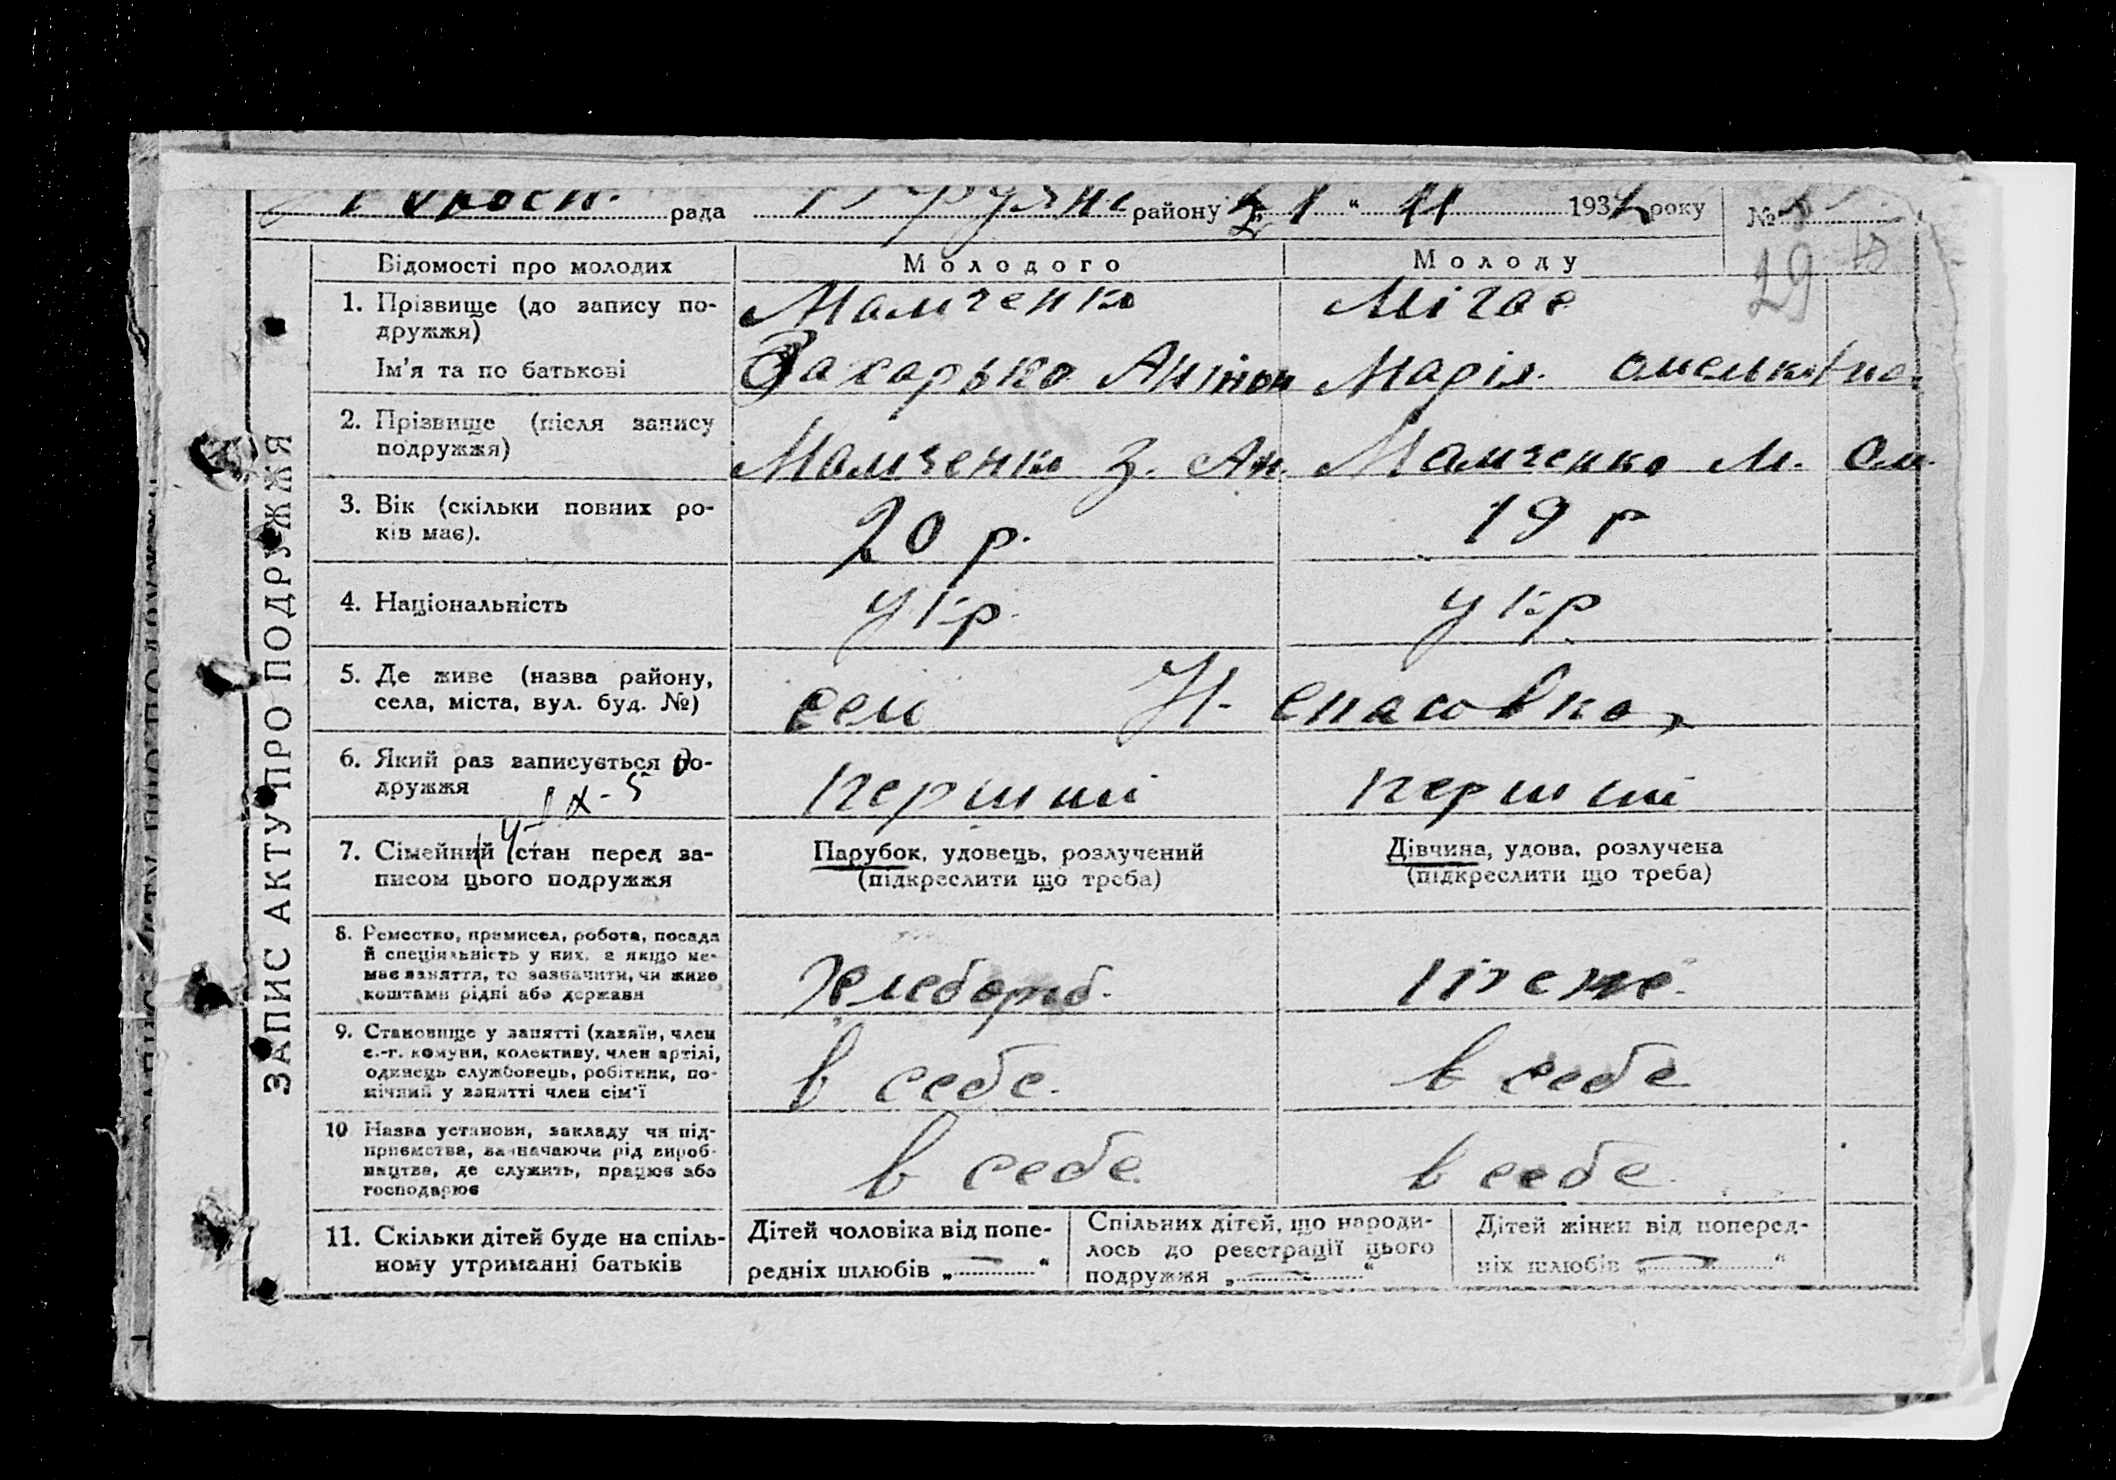 рада району 21 " 11 1932 року №
29
ЗАПИС АКТУ ПРО ПОДРУЖЖЯ
Відомості про молодих Молодого Молоду
1. Прізвище (до запису по-
дружжя)
Мамченко Мігає
Ім'я та по батькові
Захарько Антон Марія омельк
2. Прізвище (після запису
подружжя)
Мамченко З. Ан. Мамченко М. Ом.
3. Вік (скільки повних ро-
ків має).
20 р. 19 р
4. Національність укр. укр
5. Де живе (назва району,
села, міста, вул. буд. №)
сели Н. спасовка,
6. Який раз записується по-
дружжя
перший перший
IX-5
7. Сімейний стан перед за-
писом цього подружжя
Парубок, удовець, розлучений
(підкреслити що треба)
Дівчина, удова, розлучена
(підкреслити що треба)
8. Ремество, промисел, робота, посада
й спеціяльність у них, а якщо не-
має заняття, то зазначити, чи живе
коштами рідні або держави
хлебороб. тоже.
9. Становище у занятті (хазяїн, член
с.-г. комуни, колективу, член артілі,
одинець службовець, робітник, по-
мічний у занятті член сім'ї
в себе. в себе
10 Назва установи, закладу чи під-
приємства, зазначаючи рід вироб-
ництва, де служить, працює або
господарює
в себе в себе
11. Скільки дітей буде на спіль-
ному утриманні батьків
Дітей чоловіка від попе-
редніх шлюбів „—“
Спільних дітей, що народи-
лось до реєстрації цього
подружжя „—“
Дітей жінки від поперед-
ніх шлюбів „—“